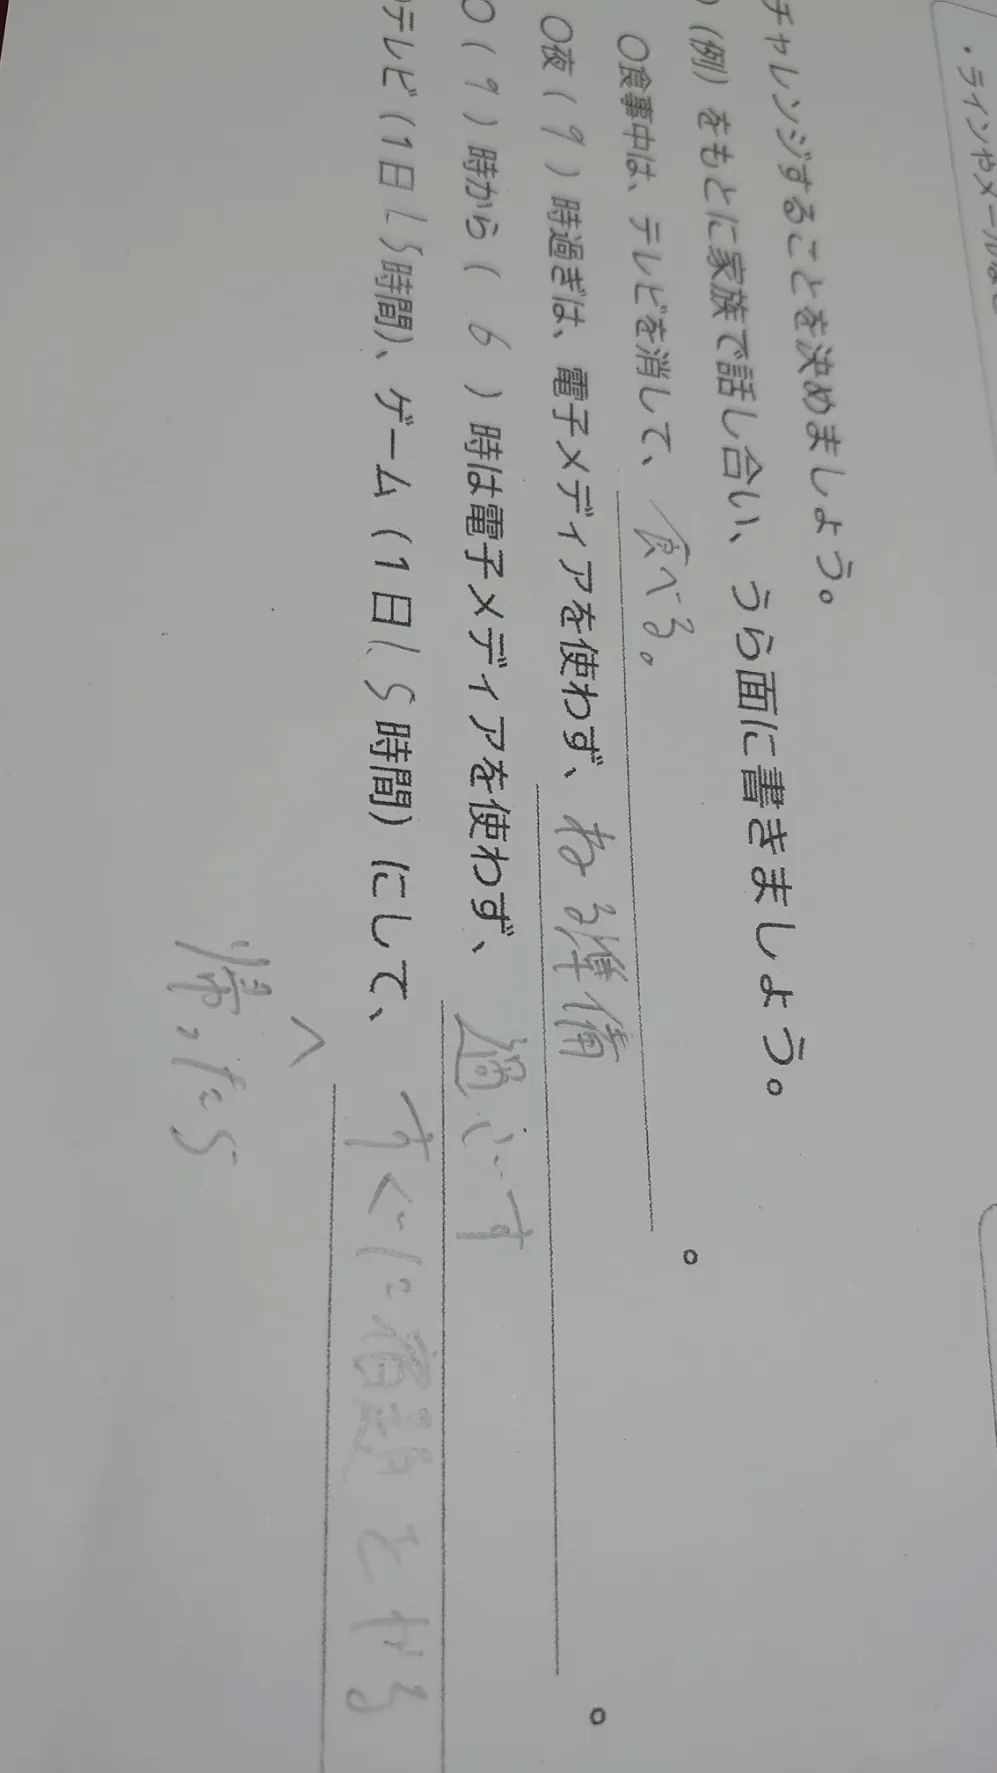 ・ラインやメール
チャレンジすることを決めましょう。
（例）をもとに家族で話し合い、うら面に書きましょう。
○食事中は、テレビを消して、食べる。。
○夜（9）時過ぎは、電子メディアを使わず、ねる準備。
○（9）時から（6）時は電子メディアを使わず、過ごす
テレビ（1日1.5時間）、ゲーム（1日1.5時間）にして、すぐに宿題をやる
帰ったら